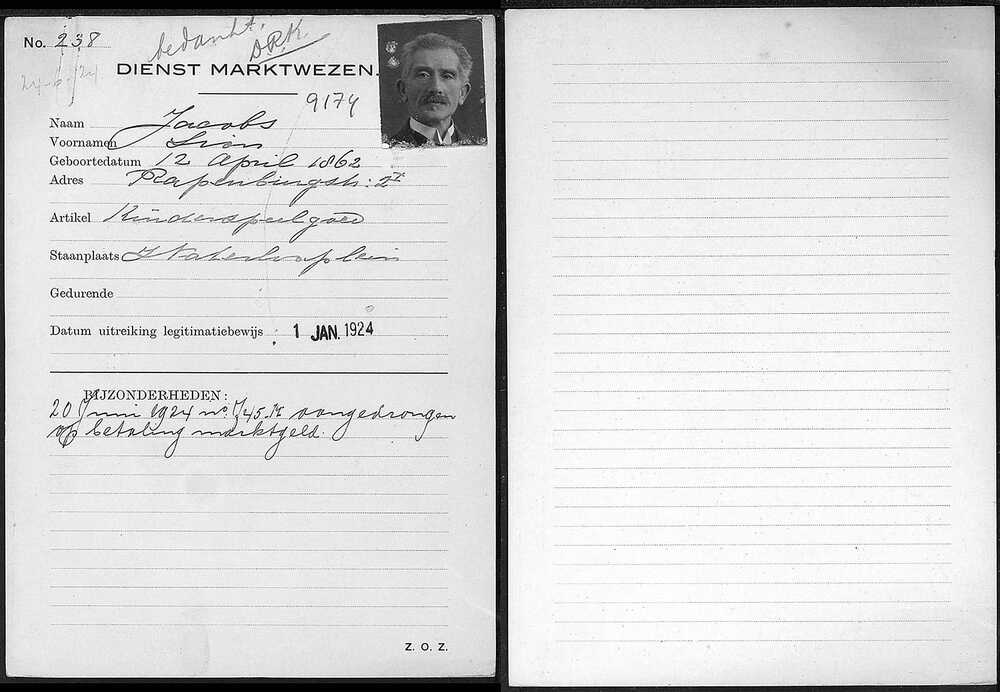 No. 238
bedankt.
D.R.K.
24-6-'24
DIENST MARKTWEZEN.
9174
Naam Jacobs
Voornamen Lion
Geboortedatum 12 April 1862
Adres Rapenburgstr: 2I
Artikel Kinderspeelgoed
Staanplaats Waterlooplein
Gedurende
Datum uitreiking legitimatiebewijs : 1 JAN. 1924
BIJZONDERHEDEN:
20 Juni 1924 no. aangedrongen
op betaling marktgeld.
Z. O. Z.